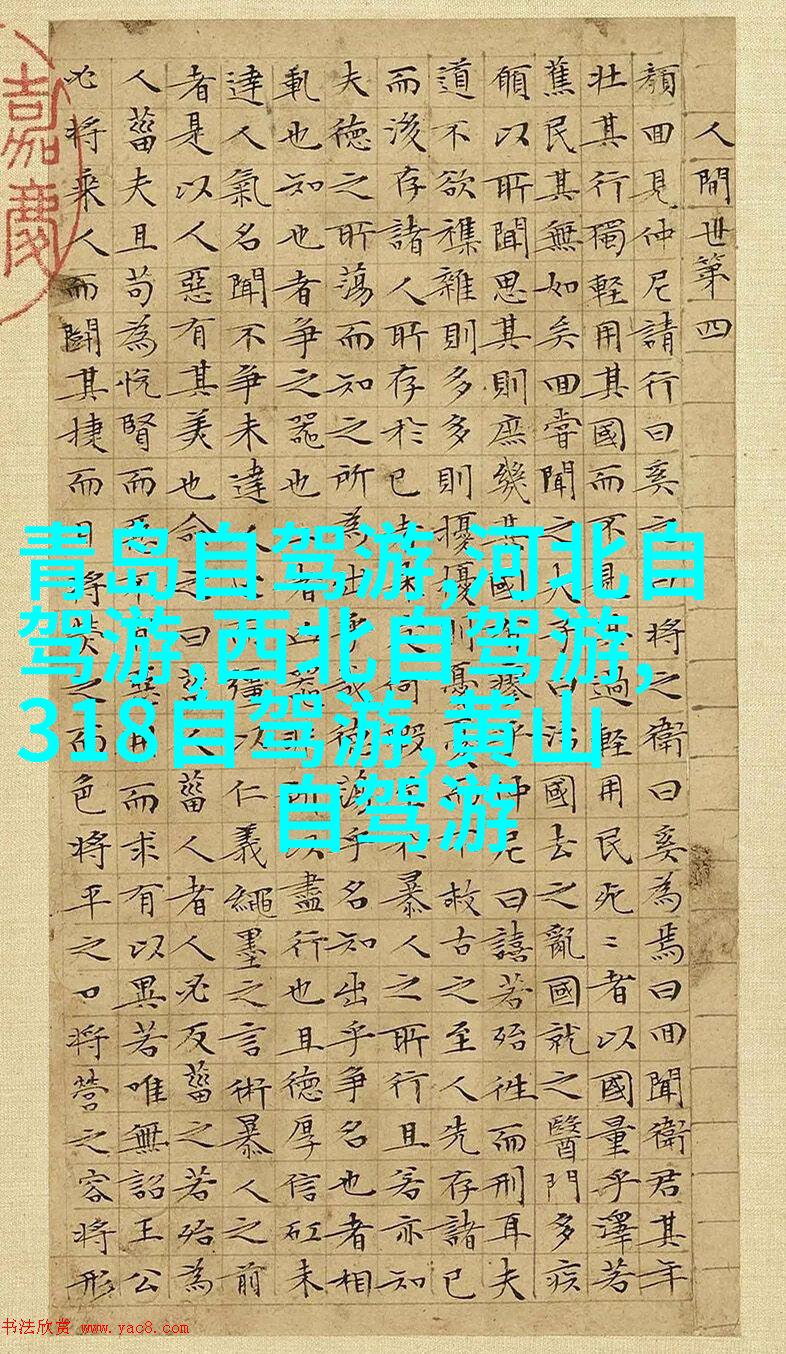 人間世第四
顏回見仲尼請行曰奚之將之衛曰奚為焉曰回聞衛君其年
壯其行獨輕用其國而不見過輕用民死〻者以國量乎澤若
蕉民其無如矣回嘗聞之夫子曰治國去之亂國就之醫門多疾
願以所聞思其則庶幾其國瘳乎仲尼曰譆若殆往而刑耳夫
道不欲襍雜則多多則擾擾則憂而不救古之至人先存諸已
而後存諸人所存於已者未何暇暴人之所行且若亦知
夫德之所蕩而知之所為出乎哉德蕩乎名知出乎爭名也者相
軋也知也者爭之器也者凶器非所以盡行也且德厚信矼未
達人氣名聞不爭未達人彊以仁義繩墨之言術暴人之前
者是以人惡有其美也命之曰菑人菑人者人必反菑之若殆為
人菑夫且苟為悅賢而惡不肖惡用而求有以異若唯無詔王公
必將乘人而鬭其捷而目將熒之而色將平之口將營之容將形
嘉慶
青岛自驾游,河北自
驾游,西北自驾游,
318自驾游,黄山
自驾游
书法欣赏 www.yac8.com